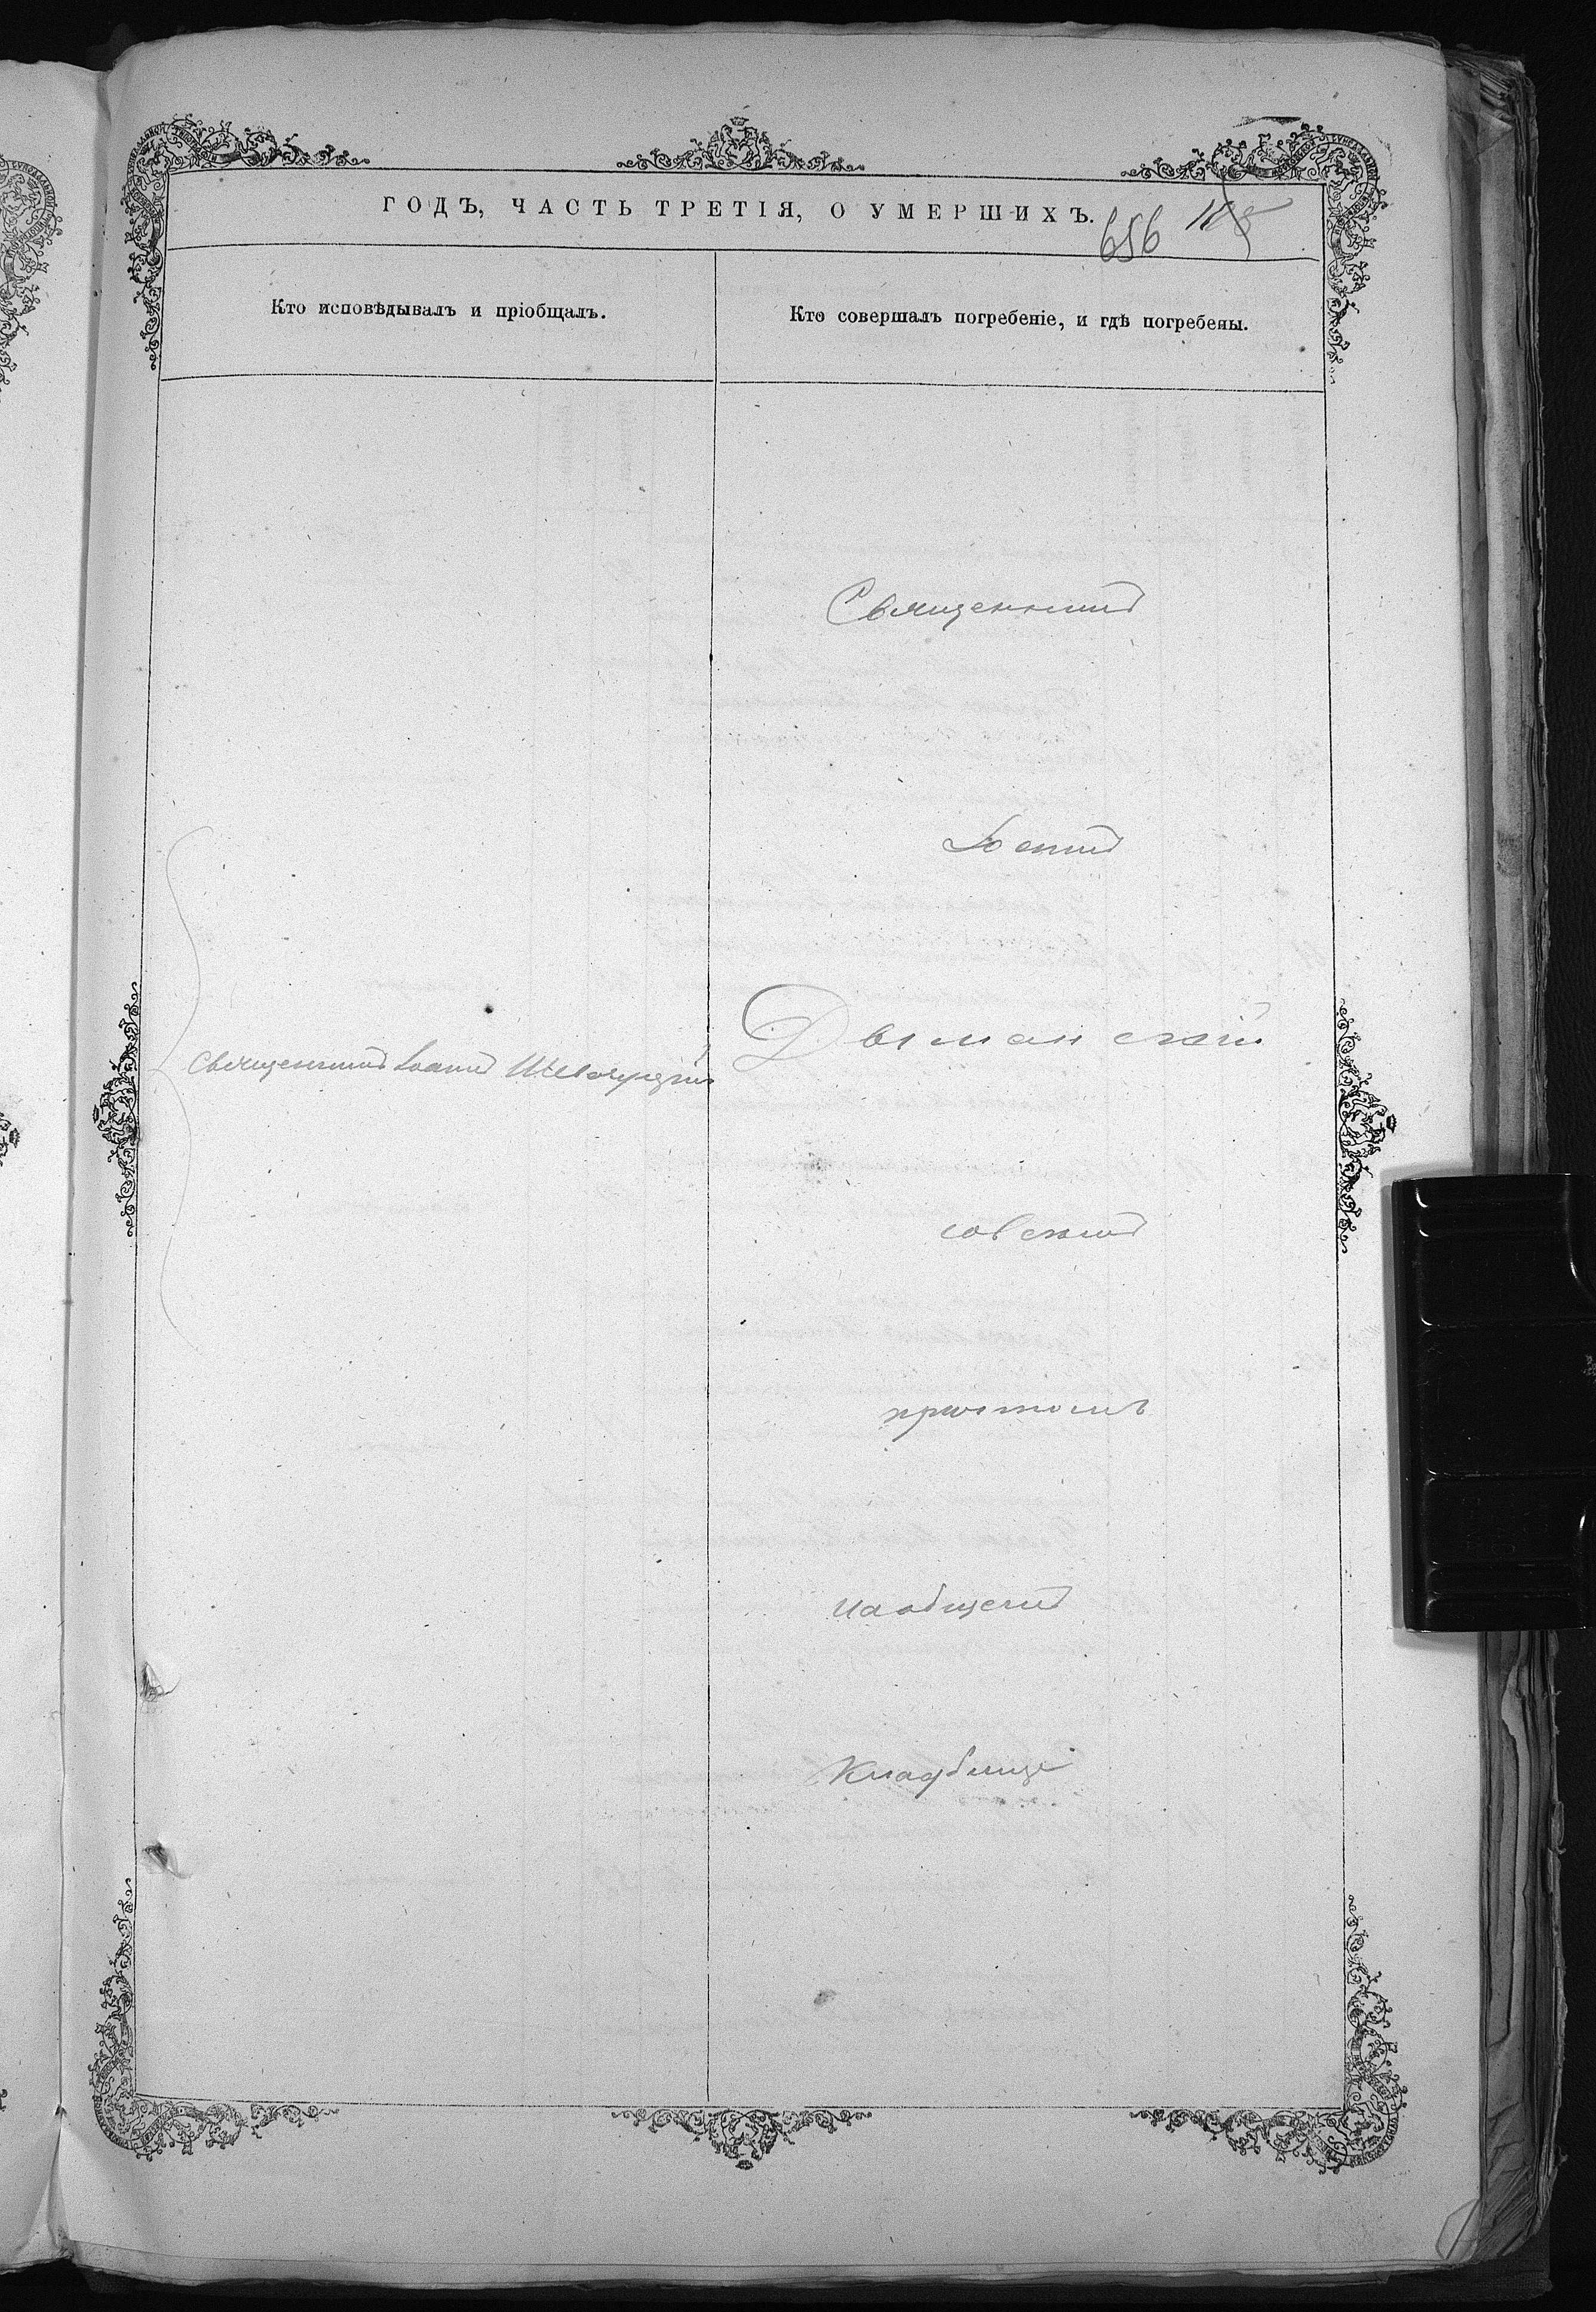 ГОДЪ, ЧАСТЬ ТРЕТІЯ, О УМЕРШИХЪ.
656
Кто исповѣдывалъ и пріобщалъ.
Кто совершалъ погребеніе, и гдѣ погребены.
Священникъ Іоаннъ
Священникъ
Іоаннъ
Дыманскій
на общемъ
Кладбище